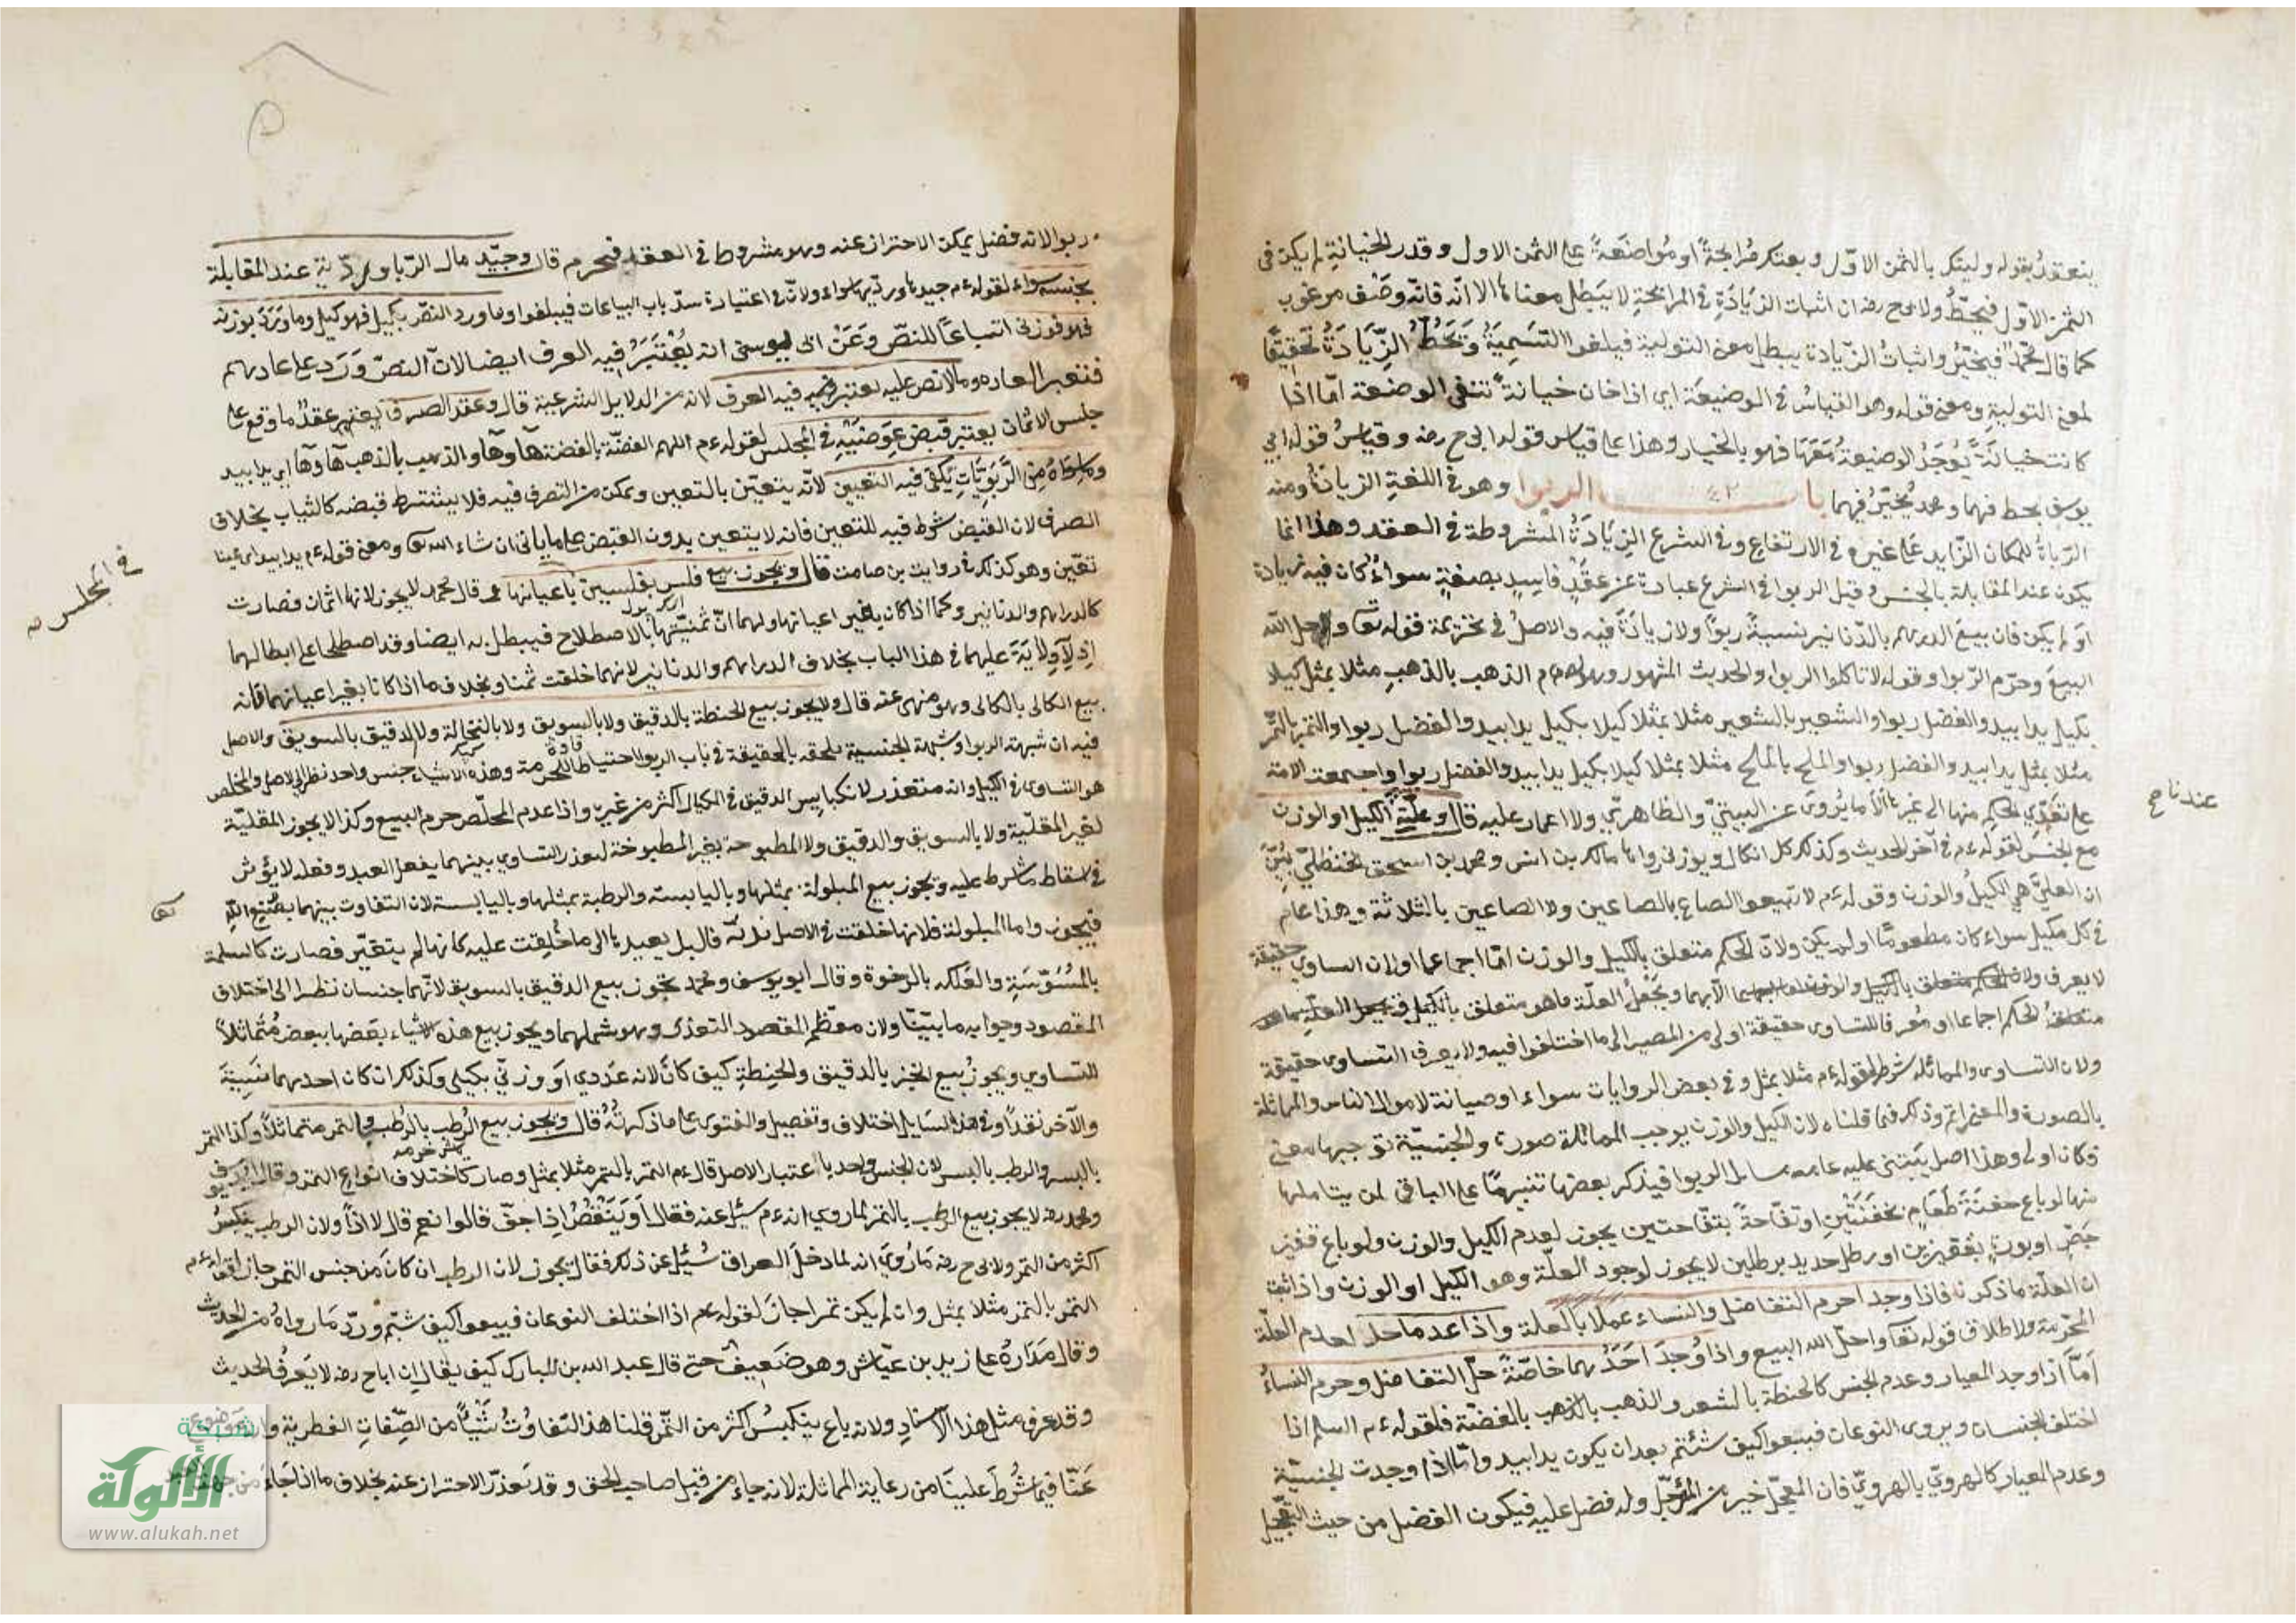 ينعقد بقوله وليتك بالثمن الاول وبعتك مرابحة او مواضعة على الثمن الاول وقدر الخيانة لم يكن في
الثمن الاول فيحط ولابي ح رضه ان اثبات الزيادة في المرابحة لا يبطل معناها الا انه فاته وصف مرغوب
كما قال محمد فيخير واثبات الزيادة يبطل معنى التولية فيلغو التسمية وتحط الزيادة تحقيقا
لمعنى التولية ومعنى قوله وهو القياس في الوضيعة اي اذا خان خيانة تنفي الوضيعة اما اذا
كانت خيانة يوجد الوضيعة معها فهو بالخيار وهذا على قياس قول ابي ح رضه وقياس قول ابي
يوسف يحط فيهما ومحمد يخير فيهما باب الربوا وهو في اللغة الزيادة ومنه
الرباة للمكان الزايد على غيره في الارتفاع وفي الشرع الزيادة المشروطة في العقد وهذا انما
يكون عند المقابلة بالجنس وقيل الربوا في الشرع عبارة عن عقد فاسد بصفة سواء كان فيه زيادة
او لم يكن فان بيع الدراهم بالدنانير نسية ربوا ولا زيادة فيه والاصل في تحريمه قوله تعا واحل الله
البيع وحرم الربوا وقوله لا تاكلوا الربوا والحديث المشهور وهو قوله ءم الذهب بالذهب مثلا بمثل كيلا
بكيل يدا بيد والفضل ربوا والشعير بالشعير مثلا بمثل كيلا بكيل يدا بيد والفضل ربوا والتمر بالتمر
مثلا بمثل يدا بيد والفضل ربوا والملح بالملح مثلا بمثل كيلا بكيل يدا بيد والفضل ربوا واجمعت الامة
على تعدي الحكم منها الى غيرها الا ما يروى عن البتي والظاهري ولا اعتماد عليه قال وعلته الكيل او الوزن
عندنا صح
مع الجنس لقوله ءم في آخر الحديث وكذلك كل ما يكال ويوزن رواه مالك بن انس ومحمد بن اسحق الحنظلي بين
ان العلة هي الكيل والوزن وقوله ءم لا تبيعوا الصاع بالصاعين ولا الصاعين بالثلاثة وهذا عام
في كل مكيل سواء كان مطعوما او لم يكن ولان الحكم متعلق بالكيل والوزن اما اجماعا او لان التساوي حقيقة
لا يعرف الا بهما وبجعل العلة ما هو متعلق
الحكم اجماعا او معرفا للتساوي حقيقة اولى من المصير الى ما اختلفوا فيه ولا يعرف التساوي حقيقة
ولان التساوي والمماثلة شرط لقوله ءم مثلا بمثل وفي بعض الروايات سواء او صيانة لاموال الناس والمماثلة
بالصورة والمعنى اتم وذلك فيما قلناه لان الكيل والوزن يوجب المماثلة صورة والجنسية توجبها معنى
فكان اولى وهذا اصل يبتنى عليه عامه مسايل الربوا فيذكر بعضها تنبيها على الباقي لمن يتاملها
منها لو باع حفنة طعام بحفنتين او تفاحة بتفاحتين يجوز لعدم الكيل والوزن ولو باع قفيز
جص او نورة بقفيزين او رطل حديد برطلين لا يجوز لوجود العلة وهو الكيل او الوزن واذا ثبت
ان العلة ما ذكرنا فاذا وجدا حرم التفاضل والنساء عملا بالعلة واذا عدما حلا لعدم العلة
المحرمة ولاطلاق قوله تعا واحل الله البيع واذا وجد احدهما خاصة حل التفاضل وحرم النساء
اما اذا وجد المعيار وعدم الجنس كالحنطة بالشعير والذهب بالفضة فلقوله ءم السلم اذا
اختلف الجنسان ويروى النوعان فبيعوا كيف شئتم بعد ان يكون يدا بيد واما اذا وجدت الجنسية
وعدم المعيار كالهروي بالهروي فان المعجل خير من المؤجل وله فضل عليه فيكون الفضل من حيث التعجيل
ربوا لانه فضل يمكن الاحتراز عنه وهو مشروط في العقد فيحرم قال وجيد مال الربا ورديه عند المقابلة
بجنسه سواء لقوله ءم جيدها ورديها سواء ولان في اعتباره سد باب البياعات فيبلغوا وما ورد النص بكيله فهو كيلي وما ورد بوزنه
فهو وزني اتباعا للنص وعن ابي يوسف انه يعتبر فيه العرف ايضا لان النص ورد على عادتهم
فتعتبر العادة وما لا نص عليه يعتبر فيه العرف لانه من الدلايل الشرعية قال وعقد الصرف ما وقع على
جنس الاثمان يعتبر قبض عوضيه في المجلس لقوله ءم الفضة بالفضة هآ وهآ والذهب بالذهب هآ وهآ اي يدا بيد
وما سواه من الربويات يكفي فيه التعيين لانه يتعين بالتعين ويمكن من التصرف فيه فلا يشترط قبضه كالثياب بخلاف
الصرف لان القبض شرط فيه للتعيين فانه لا يتعين بدون القبض على ما ياتي ان شاء الله تعا ومعنى قوله ءم يدا بيد اي عينا
في المجلس صح
تعين وهو كذلك في رواية بن صامت قال ويجوز بيع فلس بفلسين باعيانهما قال محمد لا يجوز لانها اثمان فصارت
كالدراهم والدنانير وكما اذا كان بغير اعيانها ولهما ان ثمنيتها بالاصطلاح فيبطل به ايضا وقد اصطلحا على ابطالها
اذ لا ولاية عليهما في هذا الباب بخلاف الدراهم والدنانير لانهما خلقت ثمنا وبخلاف ما اذا كانا بغير اعيانهما فانه
بيع الكالي بالكالي وهو منهى عنه قال ولا يجوز بيع الحنطة بالدقيق ولا بالسويق ولا بالنخالة ولا الدقيق بالسويق والاصل
فيه ان شبهة الربوا وشبهة الجنسية ملحقة بالحقيقة في باب الربوا احتياطا للحرمة وهذه الاشياء جنس واحد نظرا الى الاصل والمخلص
هو التساوي في الكيل وانه متعذر لانكباس الدقيق في المكيال اكثر من غيره واذا عدم المخلص حرم البيع وكذا لا يجوز المقلية
لغير المقلية ولا بالسويق والدقيق ولا المطبوخة بغير المطبوخة لتعذر التساوي بينهما بفعل العبد وفعله لا يؤثر
في اسقاط ما شرط عليه ويجوز بيع المبلولة بمثلها وباليابسة والرطبة بمثلها وباليابسة لان التفاوت بينهما بصنع الله
تعا
فيجوز واما المبلولة فلانها خلقت في الاصل ندية فالبل يعيدها الى ما خلقت عليه كانها لم يتغير فصارت كالسليمة
بالمسوسة والعلكه بالرخوة وقال ابو يوسف ومحمد يجوز بيع الدقيق بالسويق لانهما جنسان نظرا الى اختلاف
المقصود وجوابه ما بينا ولان معظم المقصود التغذي وهو شملهما ويجوز بيع هذه الاشياء بعضها ببعض متماثلا
للتساوي ويجوز بيع الخبز بالدقيق والحنطة كيف كان لانه عددي او وزني بكيلي وكذلك ان كان احدهما نسيئة
والآخر نقدا وفي هذه المسايل اختلاف وتفصيل والفتوى على ما ذكرته قال ويجوز بيع الرطب بالرطب وبالتمر متماثلا وكذا التمر
بالبسر والرطب بالبسر لان الجنس واحد باعتبار الاصل قال ءم التمر بالتمر مثلا بمثل وصار كاختلاف انواع التمر وقال ابو يوسف
ومحمد رضه لا يجوز بيع الرطب بالتمر لما روي انه ءم سئل عنه فقال او ينقص اذا جف قالوا نعم قال لا اذا ولان الرطب ينكبس
اكثر من التمر ولابي ح رضه ما روي انه لما دخل العراق سئل عن ذلك فقال يجوز لان الرطب ان كان من جنس التمر جاز لقوله ءم
التمر بالتمر مثلا بمثل وان لم يكن تمرا جاز لقوله ءم اذا اختلف النوعان فبيعوا كيف شئتم ورد ما رواه من الحديث
وقال مداره على زيد بن عياش وهو ضعيف حتى قال عبد الله بن المبارك كيف يقال ان ابا ح رضه لا يعرف الحديث
وقد عرف مثل هذا الاسناد ولانه باع ينكبس اكثر من التمر قلنا هذا التفاوت نشأ من الصفات الفطرية وانه موضوع
عنا فيما شرط علينا من رعاية المماثلة لانه جاء من قبل صاحب الحق وقد تعذر الاحتراز عنه بخلاف ما اذا جاء من جهة
شبكة
الألوكة
www.alukah.net